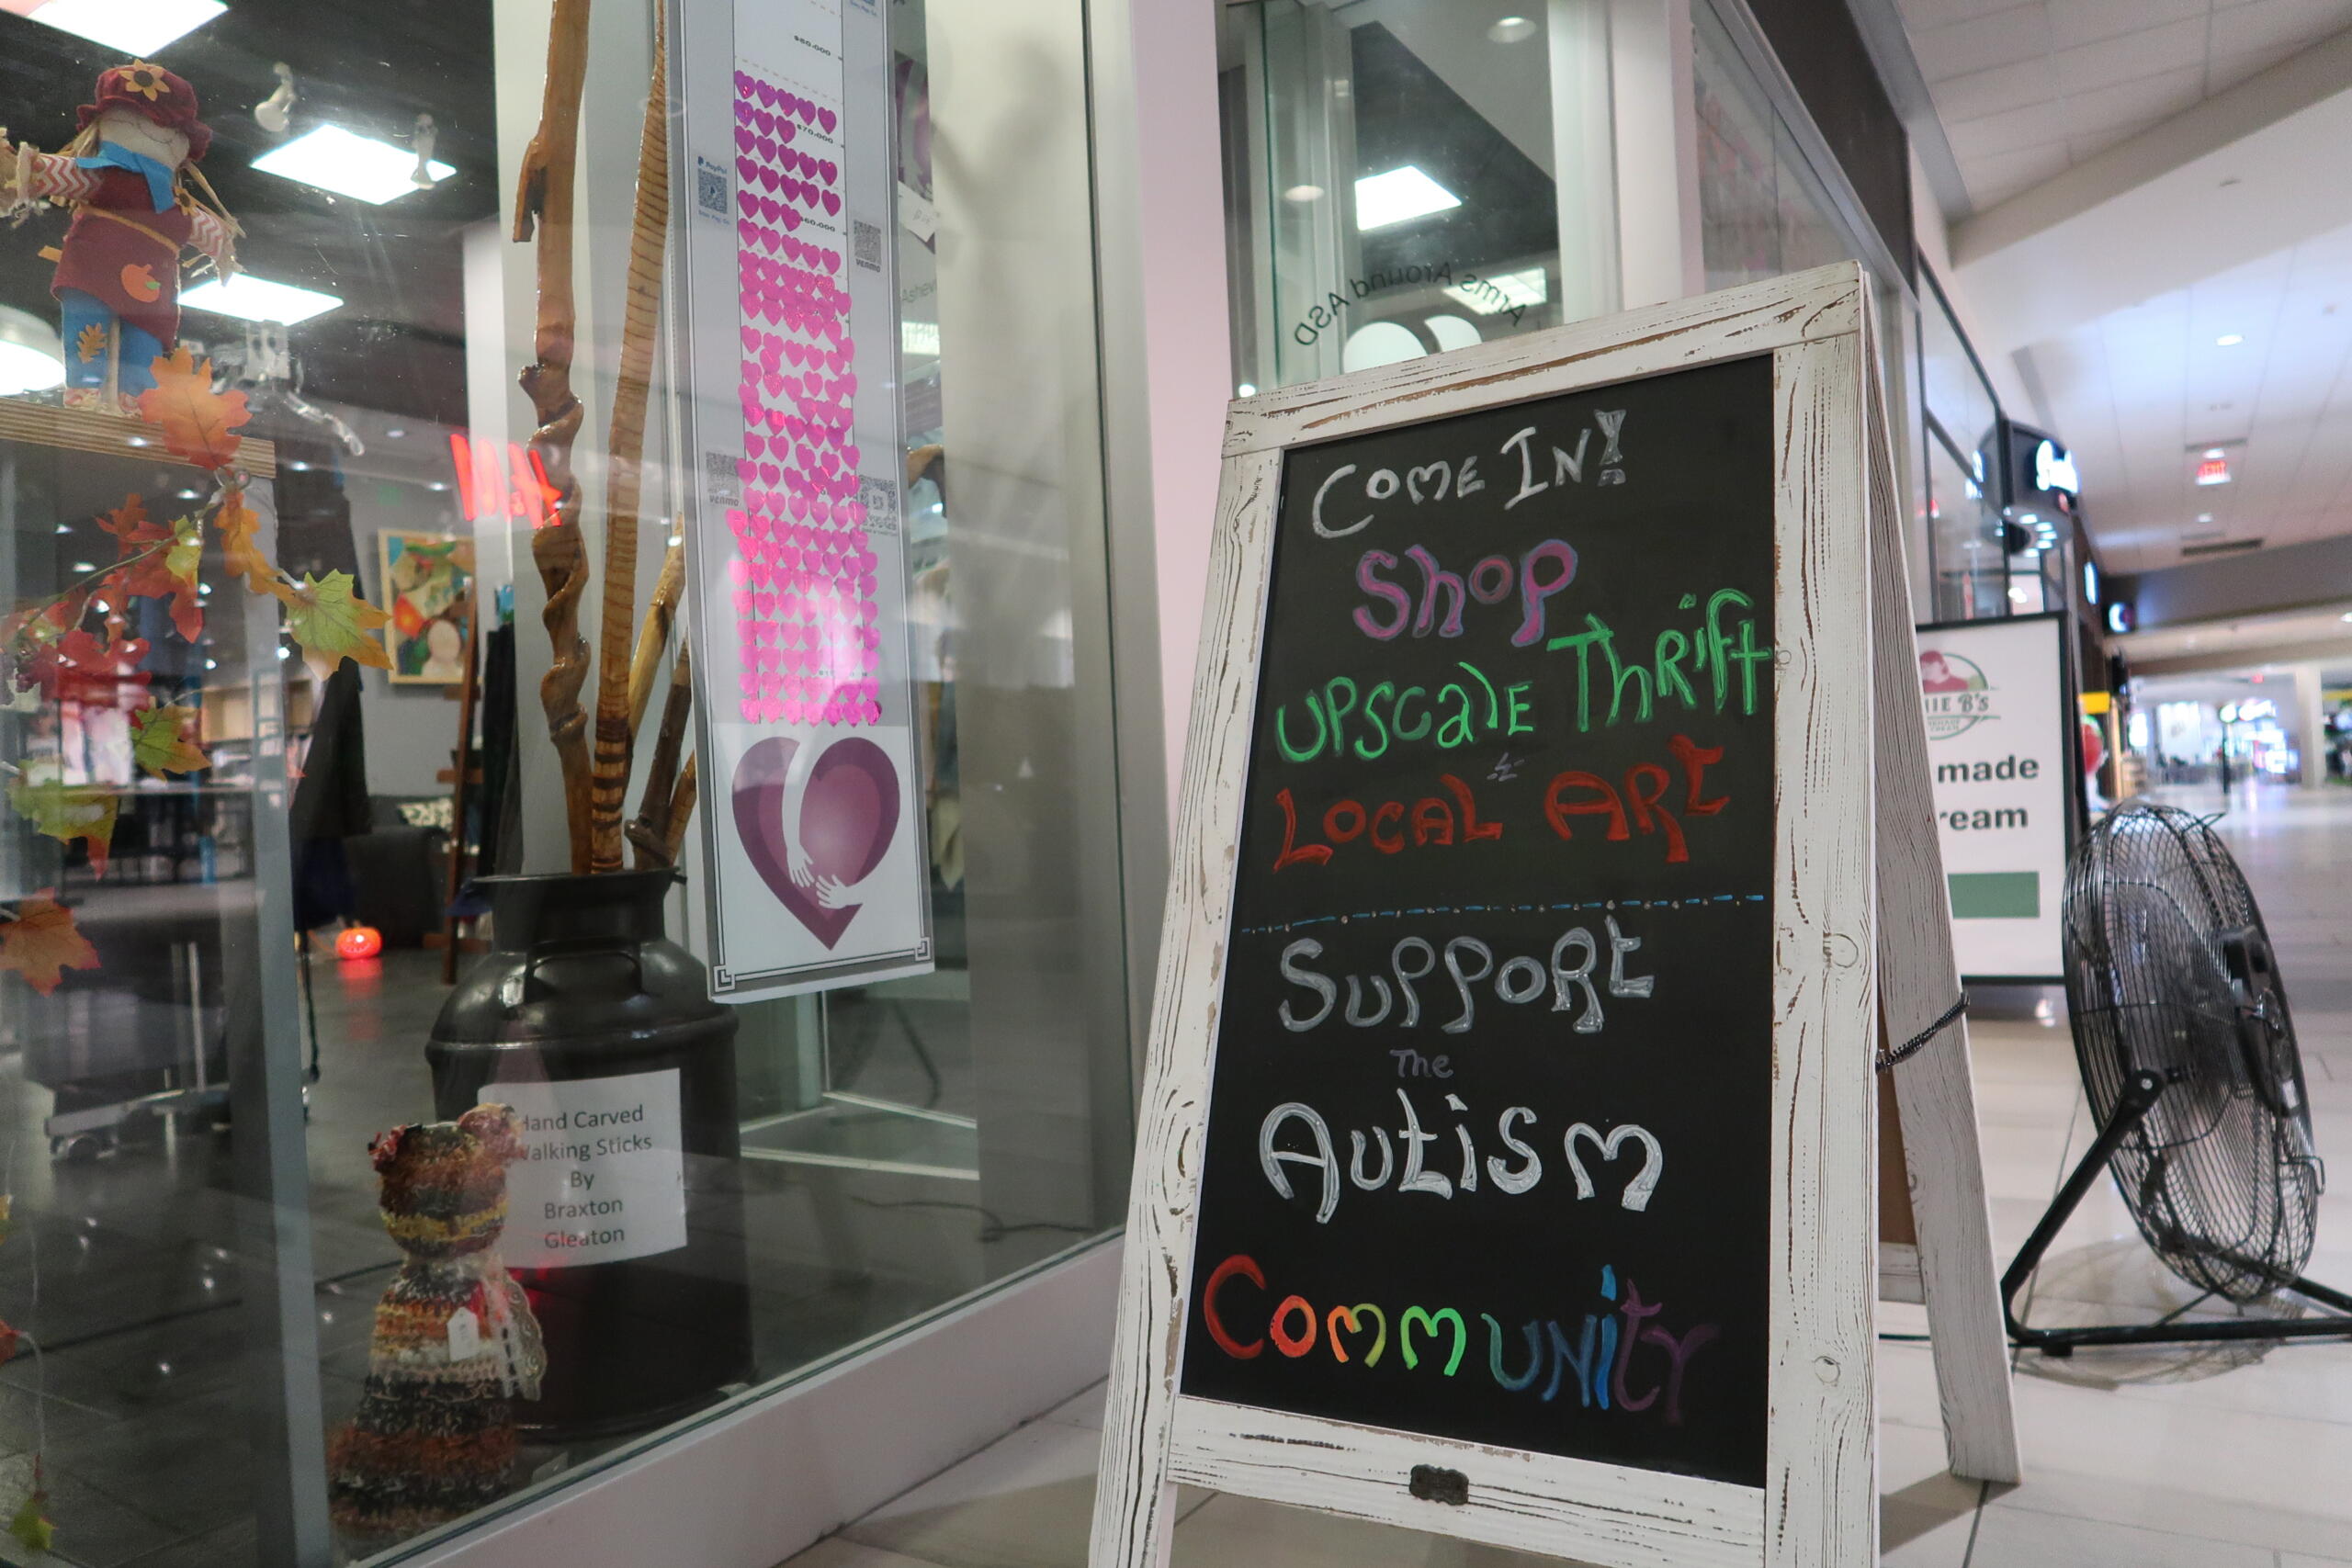 $80.000
$70.000
$60.000
PayPal
venmo
venmo
H&M
Arms Around ASD
Come In!
Shop
Upscale Thrift
&
Local Art
Support
The
Autism
Community
Hand Carved
Walking Sticks
By
Braxton
Gleaton
EXIT
B's
made
ream